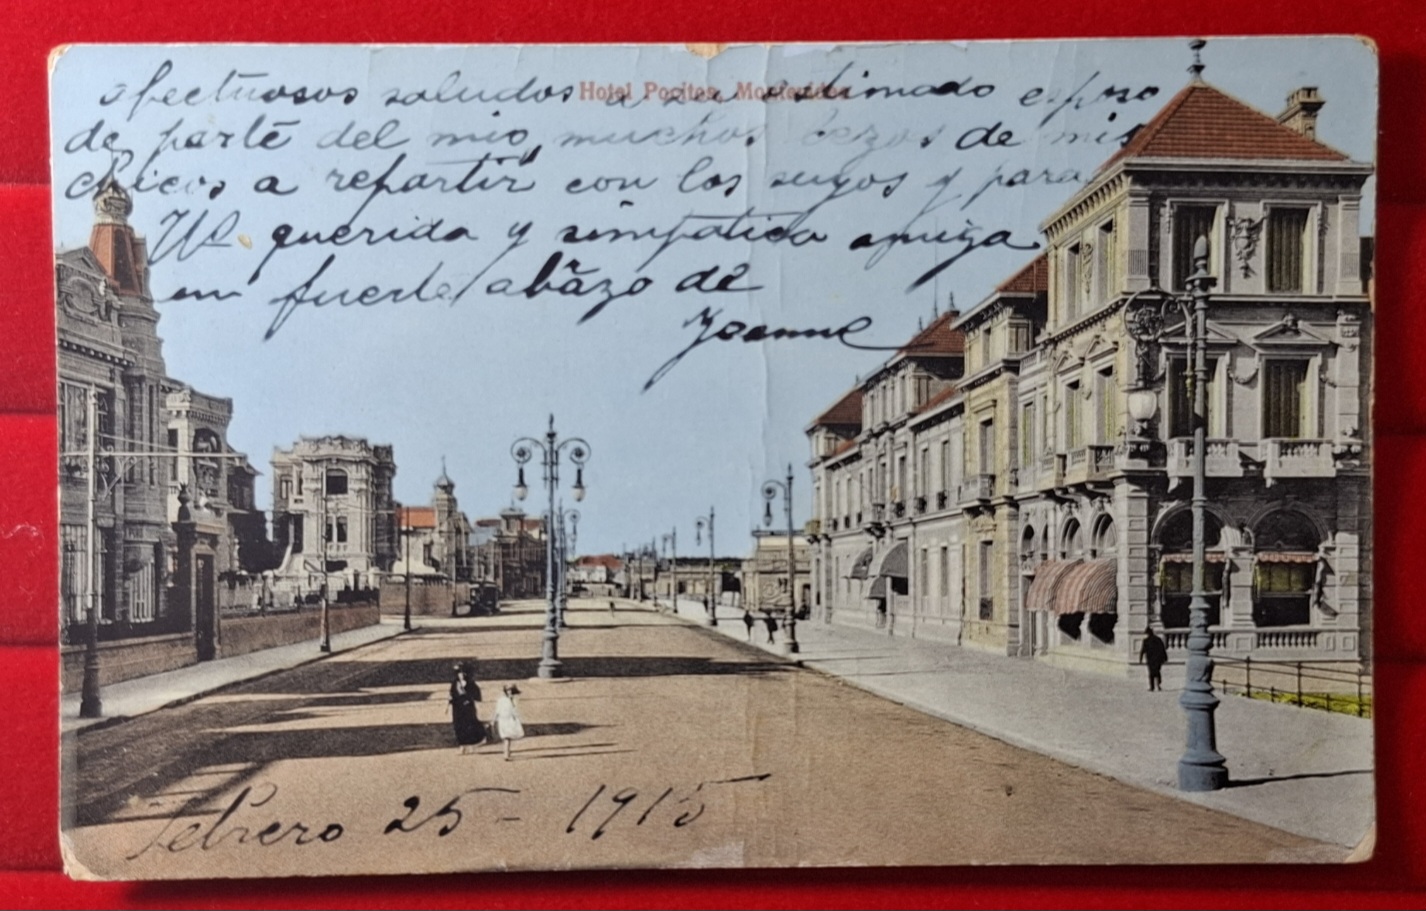 Hotel Pocitos, Montevideo
afectuosos saludos a su estimado esposo
de parte del mio, muchos bezos de mis
chicos a repartir con los suyos y para
Ud. querida y simpatica amiga
un fuerte abrazo de
Jeanne
Febrero 25 - 1915